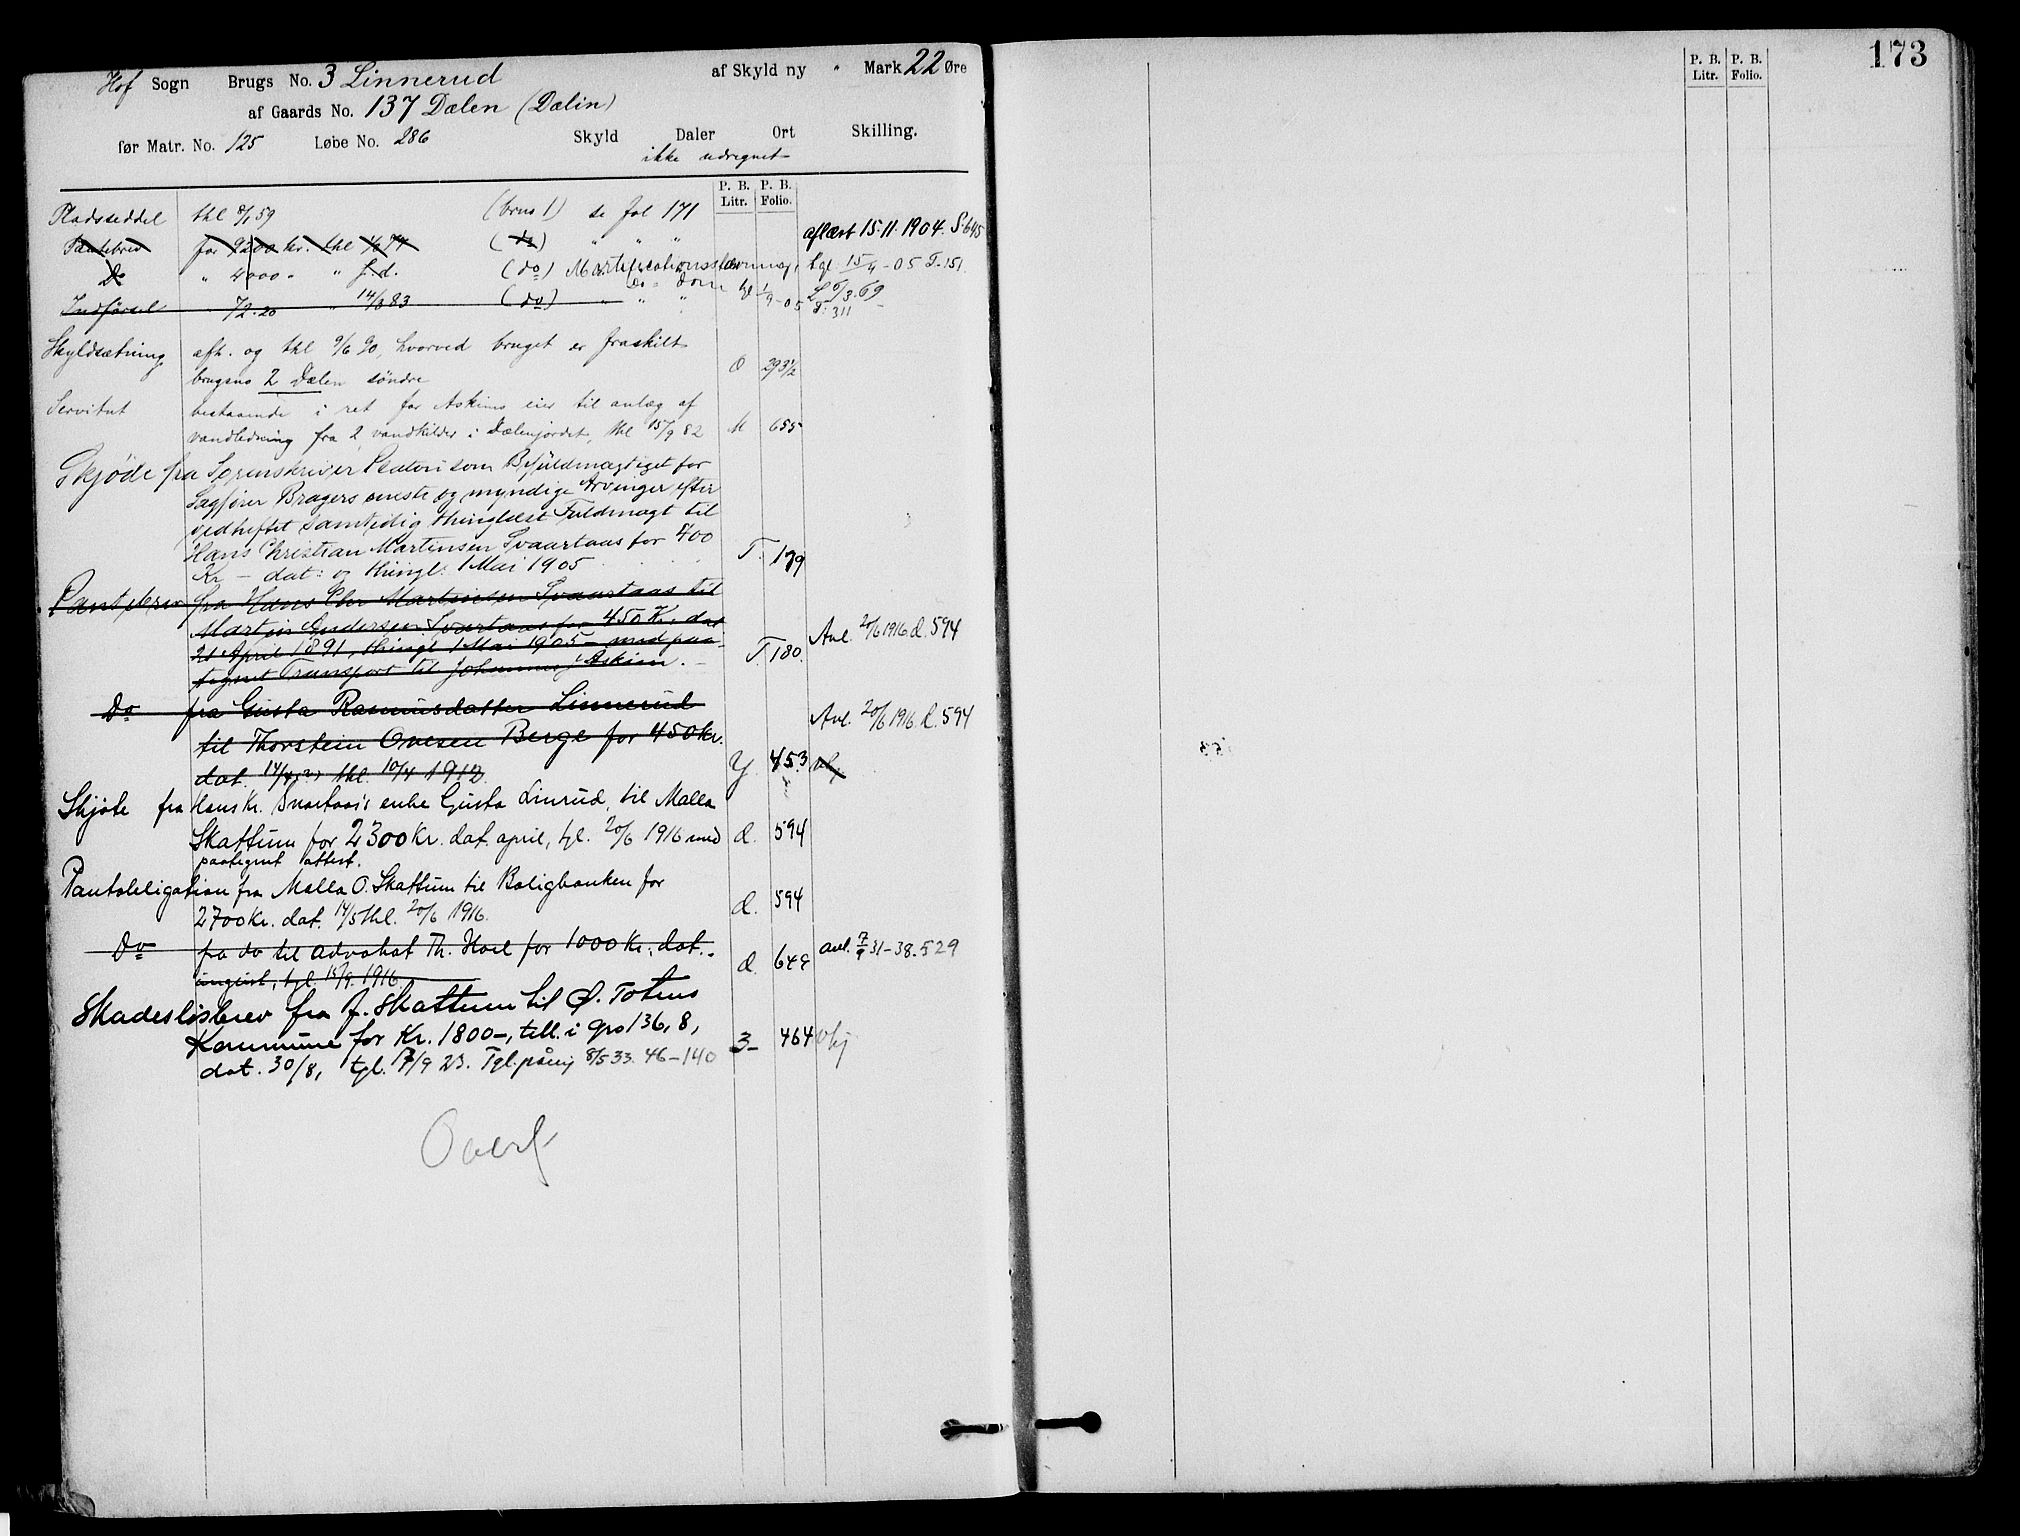 Hof Sogn Brugs No. 3 Linnerud af Skyld ny " Mark 22 Øre
af Gaards No. 137 Dælen (Dælin)
før Matr. No. 125 Løbe No. 286 Skyld Daler Ort Skilling.
ikke udregnet
P. B. Litr. P. B. Folio.
Pladsseddel thl 8/1 59 (brus 1) se fol 171
Pantebrev for 9200 kr. thl (do) " " " aflæst 15.11.1904. S. 645
Do " 4000 " " s. d. (do) Mortificationsstævning, tgl. 15/4 - 05 T. 151
Do " Dom tgl 1/9 - 05 T. 311
Indførsel " 72.20 " 14/3 83 (do) " " " L 5/3.69
Skyldsætning afh. og thl 9/6 90, hvorved bruget er fraskilt
brugsno 2 Dælen søndre O 293 1/2
Servitut bestaaende i ret for Askims eier til anlæg af
vandledning fra 2 vandkilder i Dælenjordet, thl 15/9 82 M 655
Skjøde fra Sorenskriver som Befuldmægtiget for
Sagfører Bragers eneste og myndige Arvinger efter
vedheftet samtidig thinglæst Fuldmagt til
Hans Christian Martinsen Svaartaas for 400
Kr — dat: og thingl. 1 Mai 1905 T. 179
Pantebrev fra Hans Chr Martinsen Svaartaas til
Martin Andersen Svartaas for 450 Kr. dat
21 April 1891, thingl 1 Mai 1905 — med paa-
tegnet Transport til Johannes Askim. — T. 180. Avl. 20/6 1916 d. 594
Do fra Gusta Rasmusdatter Linnerud
til Thorstein Ovesen Berge for 450 kr.
dat. thl. 10/4 1912. Y. 453 Avl. 20/6 1916. d. 594
Skjøte fra Hans Kr. Svartaas's enke Gusta Linrud, til Malla
Skattum for 2300 Kr. dat. april, tgl. 20/6 1916 med d. 594
paategnet attest.
Pantobligation fra Malla O. Skattum til Boligbanken for
2700 Kr. dat. 14/5 thl. 20/6 1916. d. 594
Do fra do til advokat Th. Hoel for 1000 Kr. dat.
august, tgl. 15/9. 1916 d. 649 avl. 7/9 31 - 38. 529
Skadesløsbrev fra J. Skattum til Ø. Totens
Kommune for Kr. 1800 -, till. i gno 136, 8,
dat. 30/8, tgl. 17/9 23. Tgl. påny 8/5 33. 46 - 140 3 - 464
Overf
P. B. Litr. P. B. Folio.
173